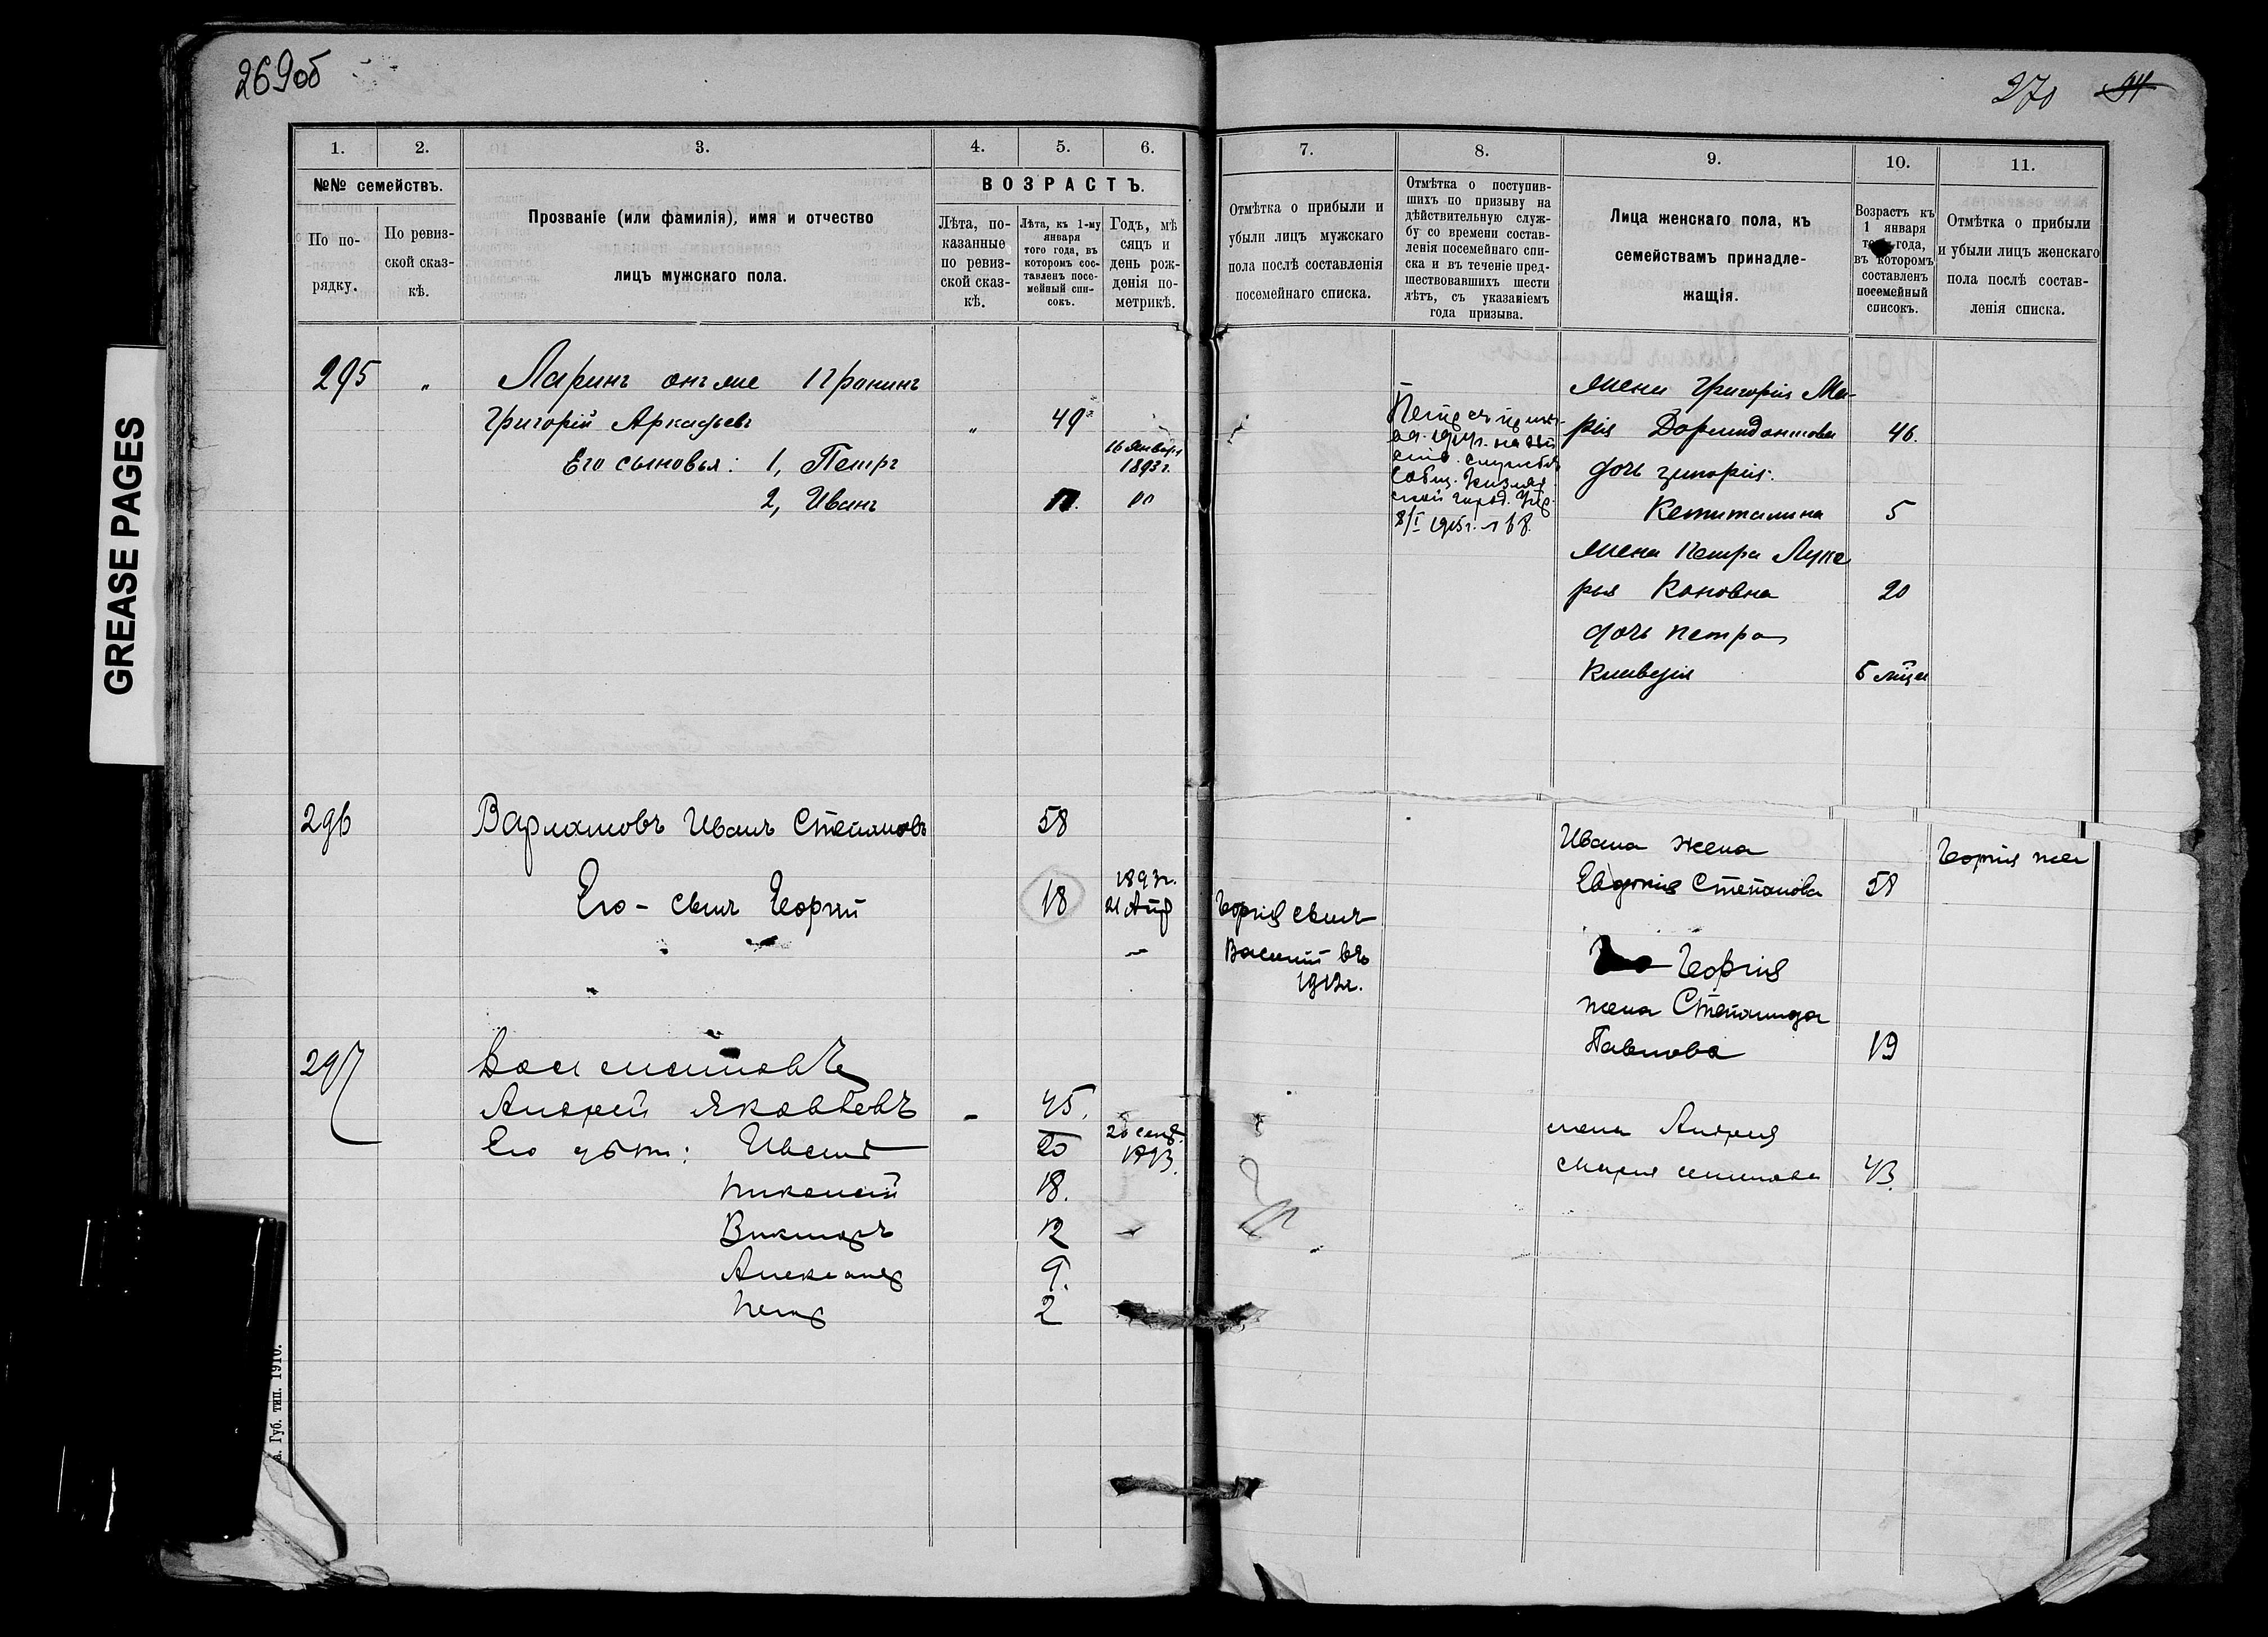 269об
270
94
GREASE PAGES
1.
2.
3.
4.
5.
6.
№№ семействъ.
По по-
рядку.
По ревиз-
ской сказ-
кѣ.
Прозваніе (или фамилія), имя и отчество
лицъ мужскаго пола.
ВОЗРАСТЪ.
Лѣта, по-
казанные
по ревиз-
ской сказ-
кѣ.
Лѣта, къ 1-му
января
того года, въ
которомъ сос-
тавленъ посе-
мейный спи-
сокъ.
Годъ, мѣ
сяцъ и
день рож-
денія по-
метрикѣ.
7.
8.
9.
10.
11.
Отмѣтка о прибыли и
убыли лицъ мужскаго
пола послѣ составленія
посемейнаго списка.
Отмѣтка о поступив-
шихъ по призыву на
дѣйствительную служ-
бу со времени состав-
ленія посемейнаго спи-
ска и въ теченіе пред-
шествовавшихъ шести
лѣтъ, съ указаніемъ
года призыва.
Лица женскаго пола, къ
семействамъ принадле-
жащія.
Возрастъ къ
1 января
года,
въ которомъ
составленъ
посемейный
списокъ.
Отмѣтка о прибыли
и убыли лицъ женскаго
пола послѣ состав-
ленія списка.
295 " Ларинъ онъ же
Григорій Аркадьевъ " 49
Его сыновья: 1, Петръ 16 Января
1893 г.
2, Иванъ
на
служб
город.
8/I 1915 г.
жена Григорія Ма-
рія Дормидонтова 46.
дочь Григорія:
Капиталина 5
жена Петра Луке
рья Коновна 20
дочь Петра
Клавдія 5 мѣц
296 Варламовъ Иванъ Степановъ 58
Его - сынъ Георгій 18 1893 г.
21 Апр
Георгія сынъ
Василій въ
1913 г.
Ивана жена
Евдокия Степанова 58
Георгія
жена Степанида
Павлова 19
Георгія же
297
Андрей Яковлевъ - 45.
Его дѣти: Иванъ 20 20 сент.
1893.
Николай 18.
Викторъ 12
Александръ 9.
Петръ 2
жена Андрея
Марія 43.
Губ. тип. 1910.